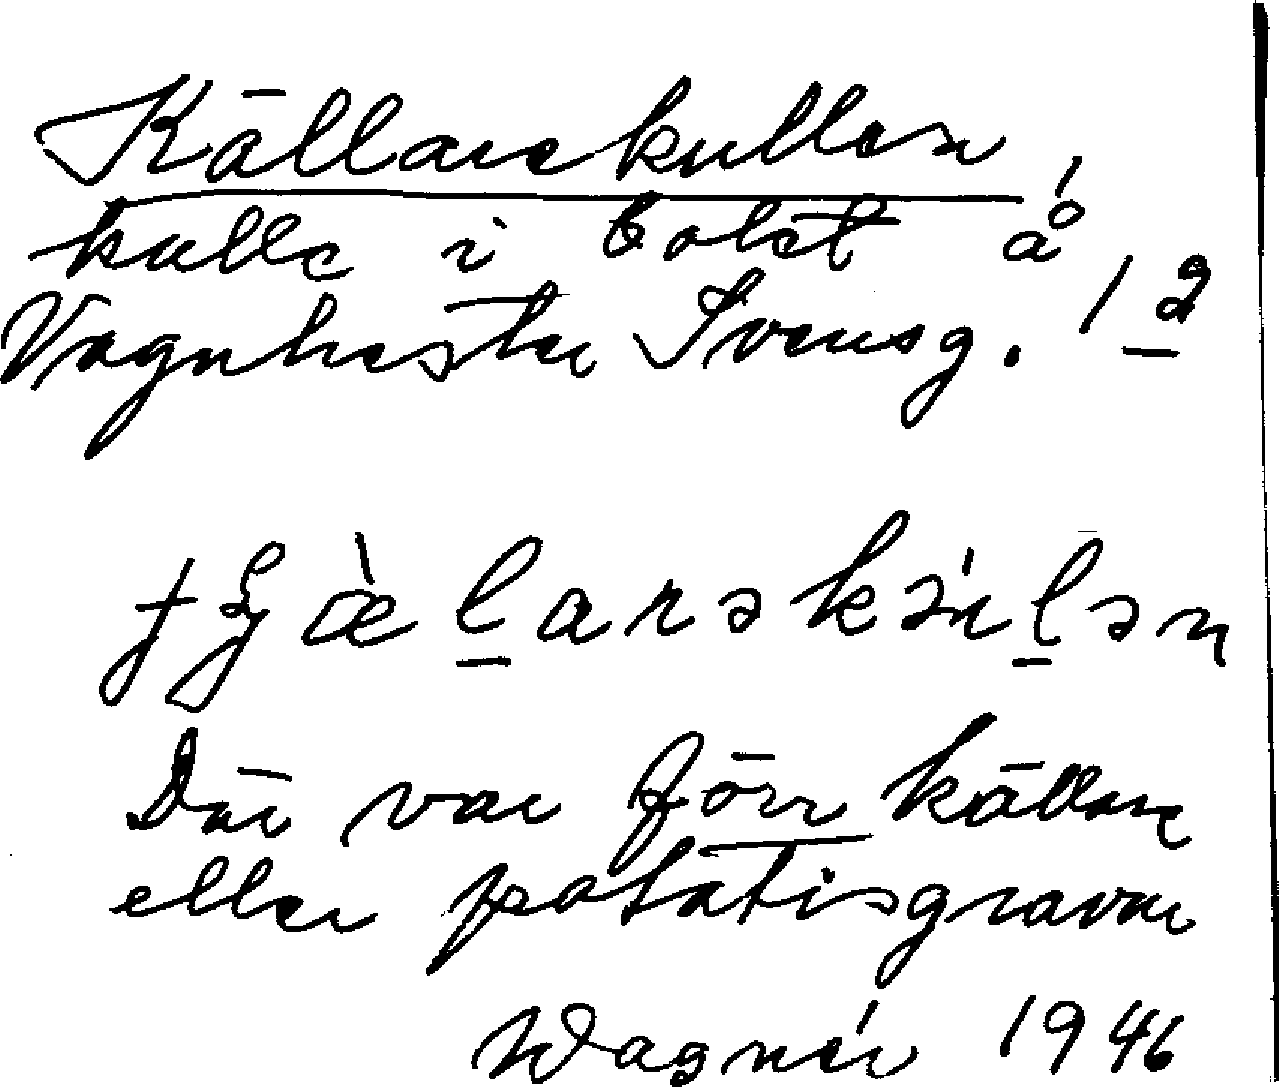 Källarekullen,
kulle i bolet å
Vagnhester Svensg. 1 2
Där var förr källare
eller potatisgravar
Wagnér 1946